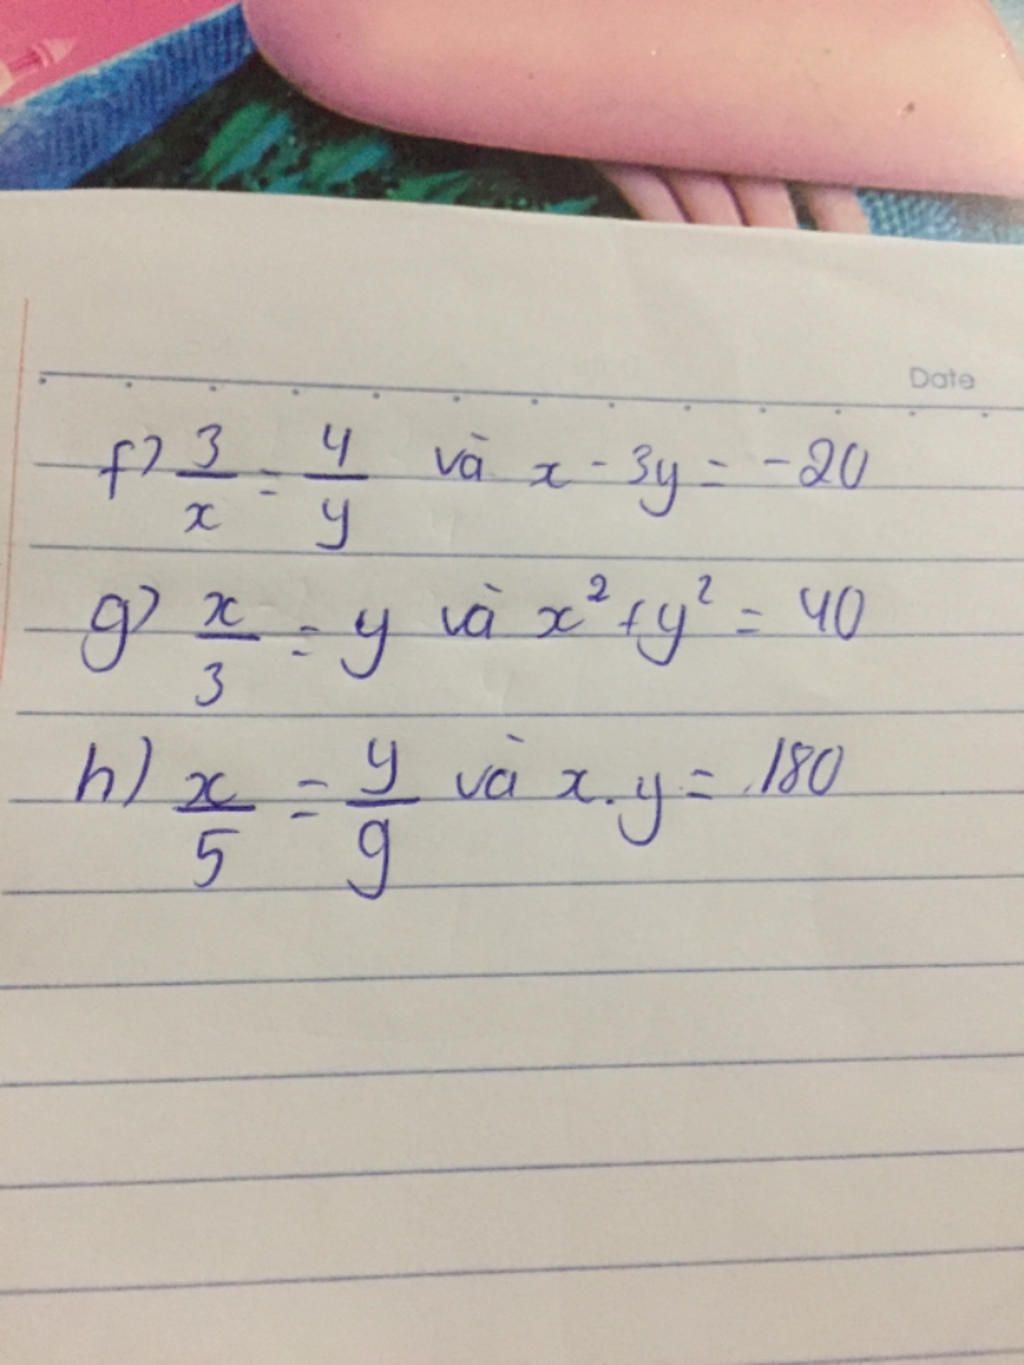 Date
f) 3/x = 4/y và x - 3y = -20
g) x/3 = y và x² + y² = 40
h) x/5 = y/9 và x.y = 180